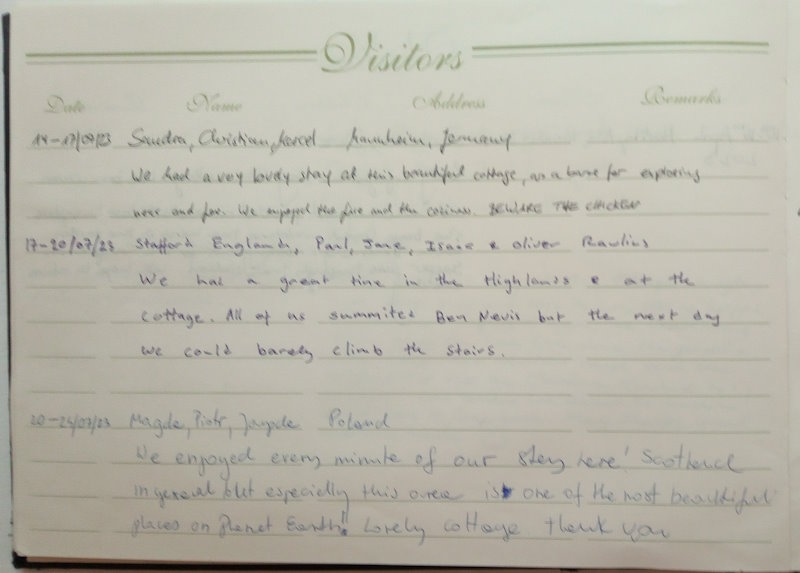 Visitors
Date Name Address Remarks
14-17/07/23 Sandra, Christian, Marcel Mannheim, Germany
We had a very lovely stay at this beautiful cottage, as a base for exploring
near and far. We enjoyed the fire and the cosiness. BEWARE THE CHICKEN
17-20/07/23 Stafford England, Paul, Jane, Isaac & Oliver Rawlins
We had a great time in the Highlands & at the
cottage. All of us summited Ben Nevis but the next day
we could barely climb the stairs.
20-24/07/23 Magda, Piotr, Poland
We enjoyed every minute of our stay here! Scotland
in general but especially this area is one of the most beautiful
places on Planet Earth!! Lovely cottage thank you